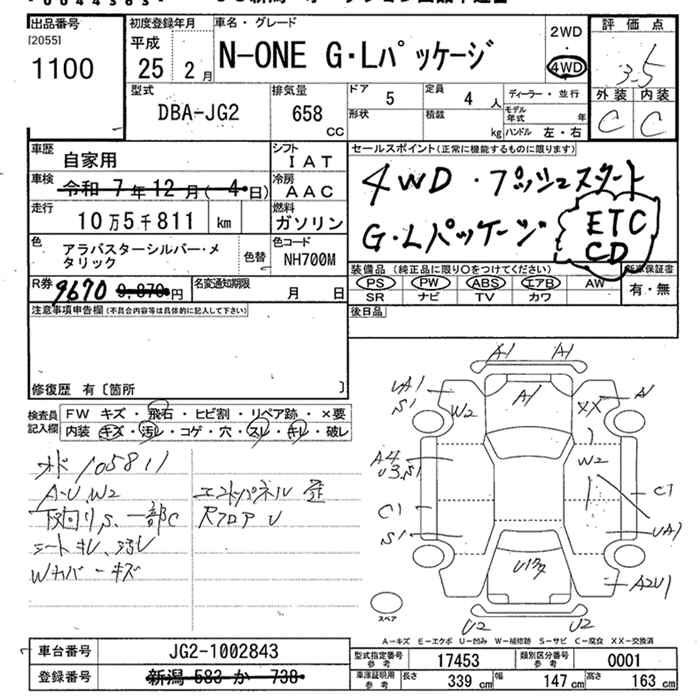 出品番号
[2055]
1100
初度登録年月
平成
25 2 月
車名・グレード
N-ONE G・Lパッケージ
2WD
4WD
評価点
3.5
外装 内装
C C
型式
DBA-JG2
排気量
658
CC
ドア
5
定員
4 人
形状
積載
kg
ディーラー・並行
モデル年式 年
ハンドル 左・右
車歴
自家用
シフト
IAT
車検
令和 7年12月( 4日)
冷房
AAC
走行
10万5千811 km
燃料
ガソリン
色
アラバスターシルバー・メタリック
色替
色コード
NH700M
R券
9670 9,870円
名変通知期限
月 日
セールスポイント(正常に機能するものに限ります)
4WD ・プッシュスタート
G・Lパッケージ
ETC
CD
装備品 (純正品に限り○をつけてください)
新車保証書
PS PW ABS エアB AW
SR ナビ TV カワ
有・無
後日品
注意事項申告欄(不具合内容等は具体的に記入して下さい)
修復歴 有〔箇所 〕
検査員記入欄
FW キズ・飛石・ヒビ割・リペア跡・×要
内装 キズ・汚レ・コゲ・穴・スレ・キレ・破レ
オド 105811
A-U, W2
下回りS、一部C
シートキレ、汚レ
Wカバーキズ
エンドパネル
Rフロア U
A1 A1
UA1
S1
W2
A1
XX
A1
A4
U3,S1
W2
C1
C1
S1
UA1
A2U1
U2 U2
スペア
A-キズ E-エクボ U-凹み W-補修跡 S-サビ C-腐食 XX-交換済
車台番号
JG2-1002843
登録番号
新潟 583 か 738
型式指定番号
参考
17453
類別区分番号
参考
0001
車庫証明用
参考
長さ 339 cm 幅 147 cm 高さ 163 cm